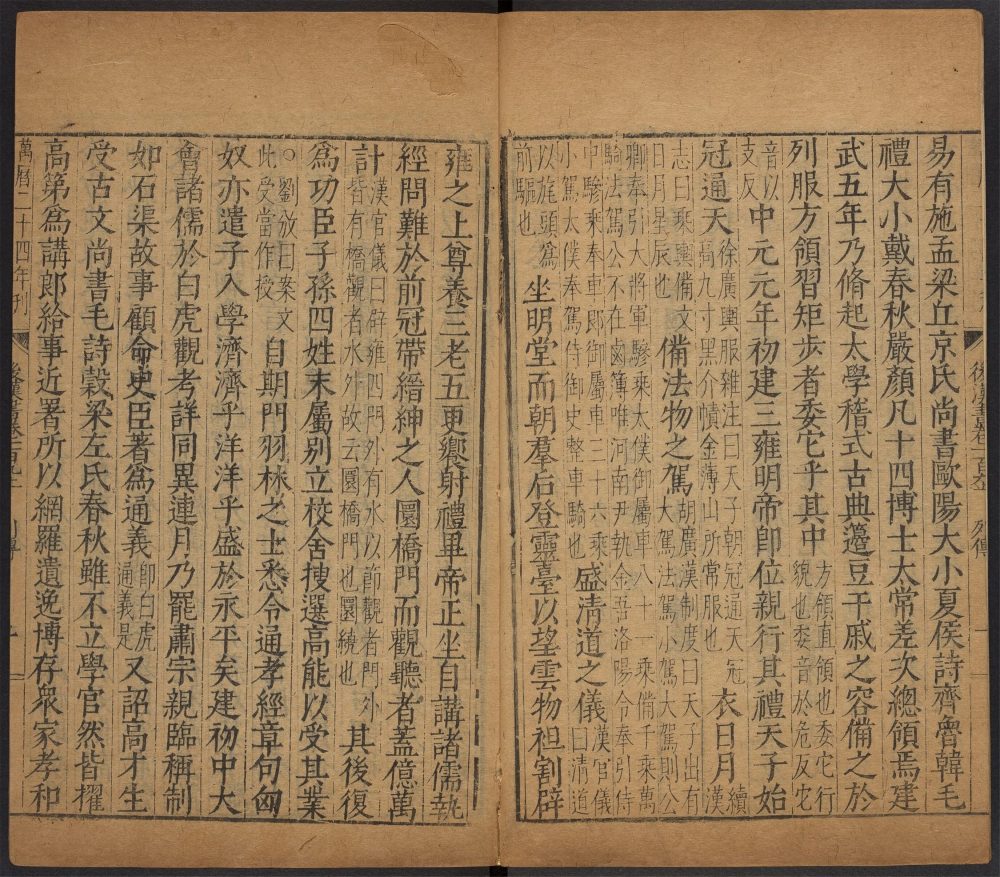 易有施孟梁丘京氏尚書歐陽大小夏侯詩齊魯韓毛
禮大小戴春秋嚴顏凡十四博士太常差次總領焉建
武五年乃脩起太學稽式古典籩豆干戚之容備之於
列服方領習矩步者委它乎其中方領直領也委它行貌也委音於危反它
音以支反中元元年初建三雍明帝即位親行其禮天子始
冠通天徐廣輿服雜注曰天子朝冠通天冠高九寸黑介幘金薄山所常服也衣日月續漢
志曰乘輿備文日月星辰也備法物之駕胡廣漢制度曰天子出有大駕法駕小駕大駕則公
卿奉引大將軍驂乘太僕御屬車八十一乘備千乘萬騎法駕公不在鹵簿唯河南尹執金吾洛陽令奉引侍
中驂乘奉車郎御屬車三十六乘小駕太僕奉駕侍御史整車騎也盛清道之儀漢官儀曰清道
以旄頭爲前驅也坐明堂而朝羣后登靈臺以望雲物袒割辟
列傳
一
雍之上尊養三老五更饗射禮畢帝正坐自講諸儒執
經問難於前冠帶縉紳之人圜橋門而觀聽者蓋億萬
計漢官儀曰辟雍四門外有水以節觀者門外皆有橋觀者水外故云圜橋門也圜繞也其後復
爲功臣子孫四姓末屬別立校舍搜選高能以受其業
○劉攽曰案文此受當作授自期門羽林之士悉令通孝經章句匈
奴亦遣子入學濟濟乎洋洋乎盛於永平矣建初中大
會諸儒於白虎觀考詳同異連月乃罷肅宗親臨稱制
如石渠故事顧命史臣著爲通義即白虎通義是又詔高才生
受古文尚書毛詩穀梁左氏春秋雖不立學官然皆擢
高第爲講郎給事近署所以網羅遺逸博存衆家孝和
萬曆二十四年刊